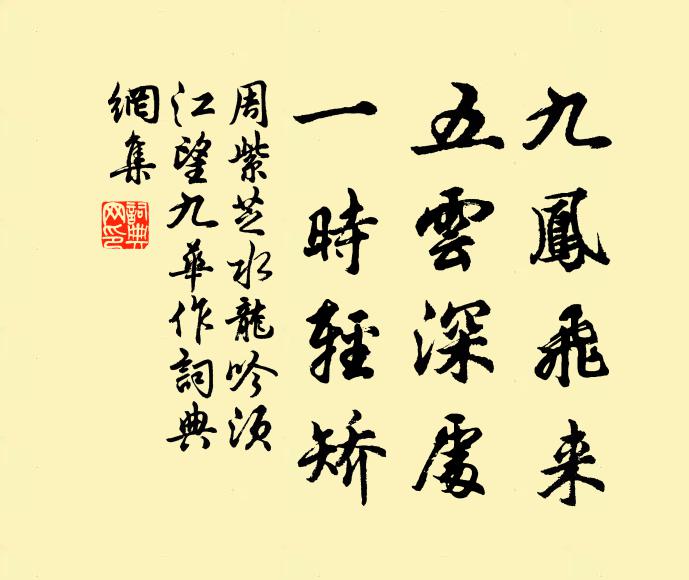 九鳳飛来
五雲深處
一時輕矯
周紫芝水龍吟須
江望九華作詞典
網集
詞典
网印